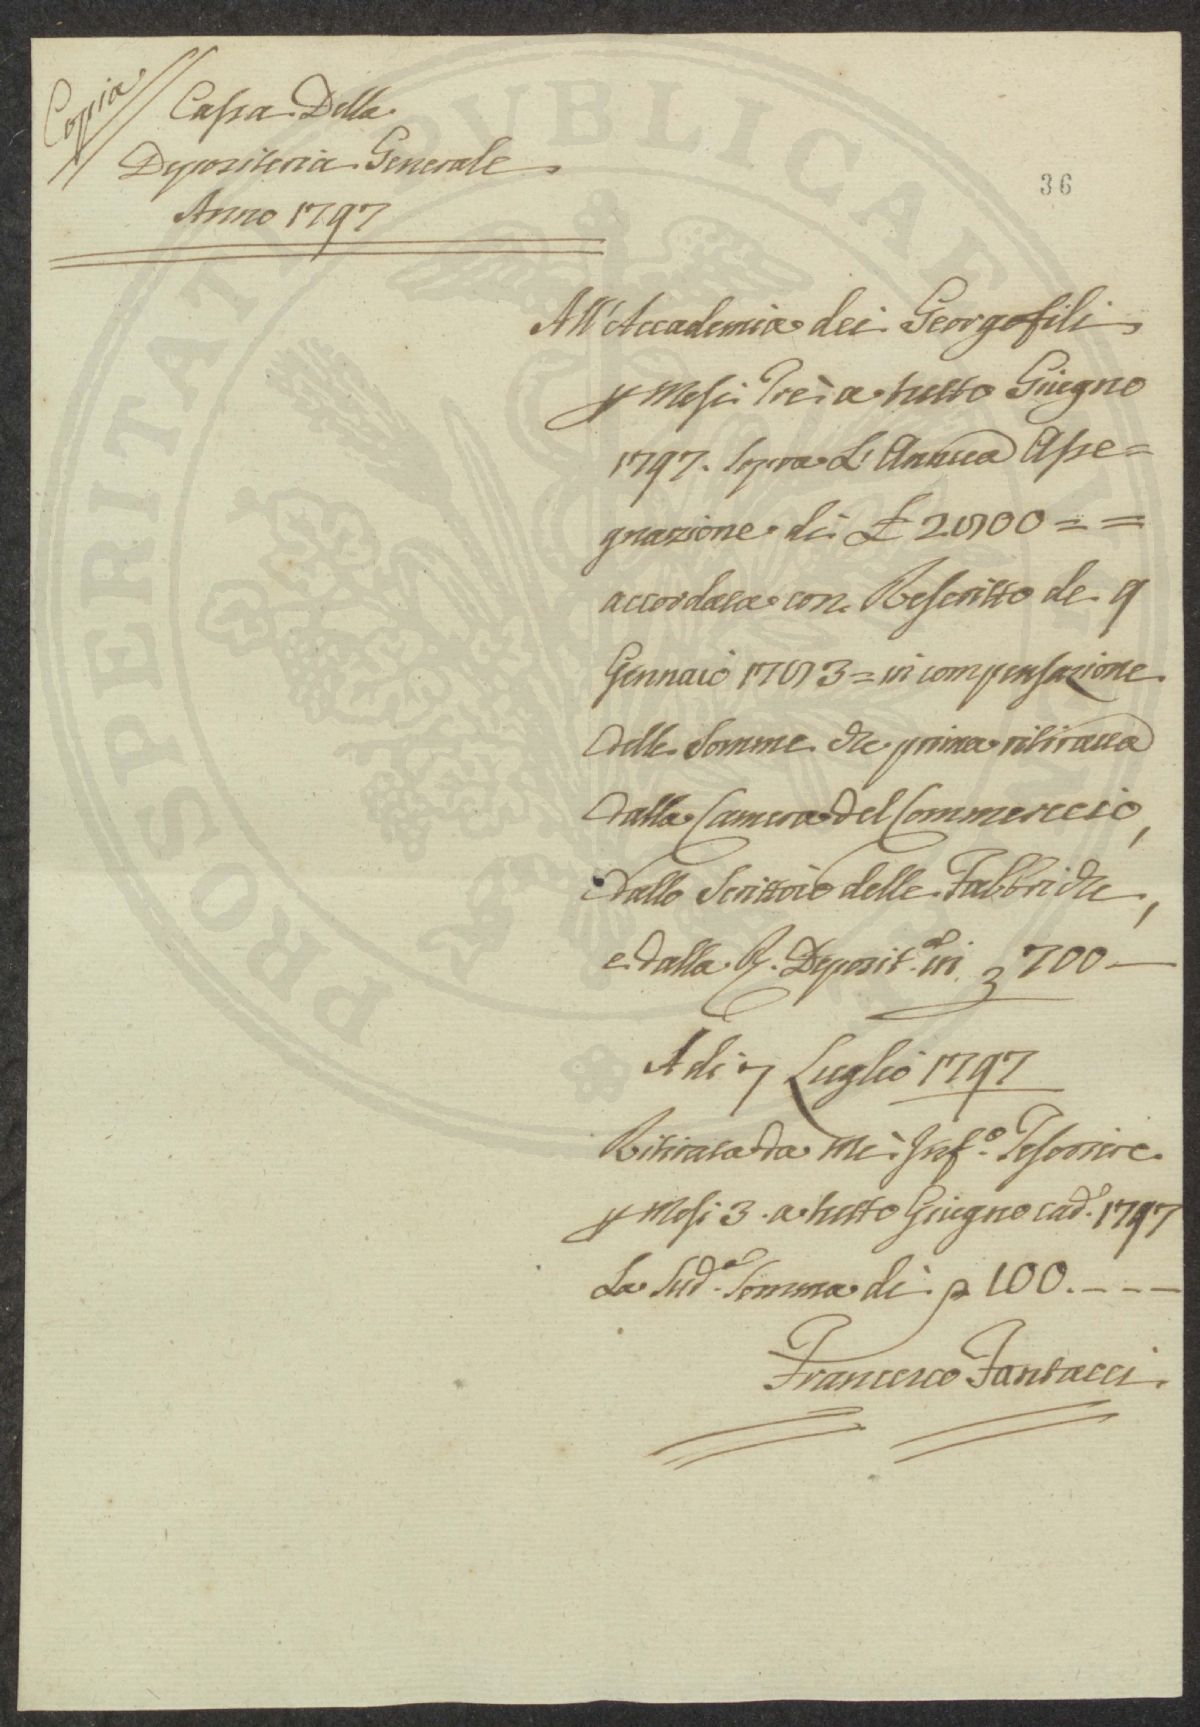 Copia
Cassa Della
Depositeria Generale
Anno 1797
36
All'Accademia dei Georgofili
p Mesi Tre a tutto Giugno
1797. Sopra L'Annua Asse=
gnazione di £ 2800 = =
accordata con Rescritto de 9
Gennaio 1783 = in compensazione
delle Somme che prima ritirava
dalla Camera del Commerccio,
dallo Scrittoio delle Fabbriche,
e dalla R. Deposit.a in 700 —
A di 7 Luglio 1797
Ritirata da Me Inf.o Tesoriere
p Mesi 3. a tutto Giugno cad.e 1797
La Sud.a Somma di 100. - - -
Francesco Fantacci
PROSPERITATI PVBLICAE